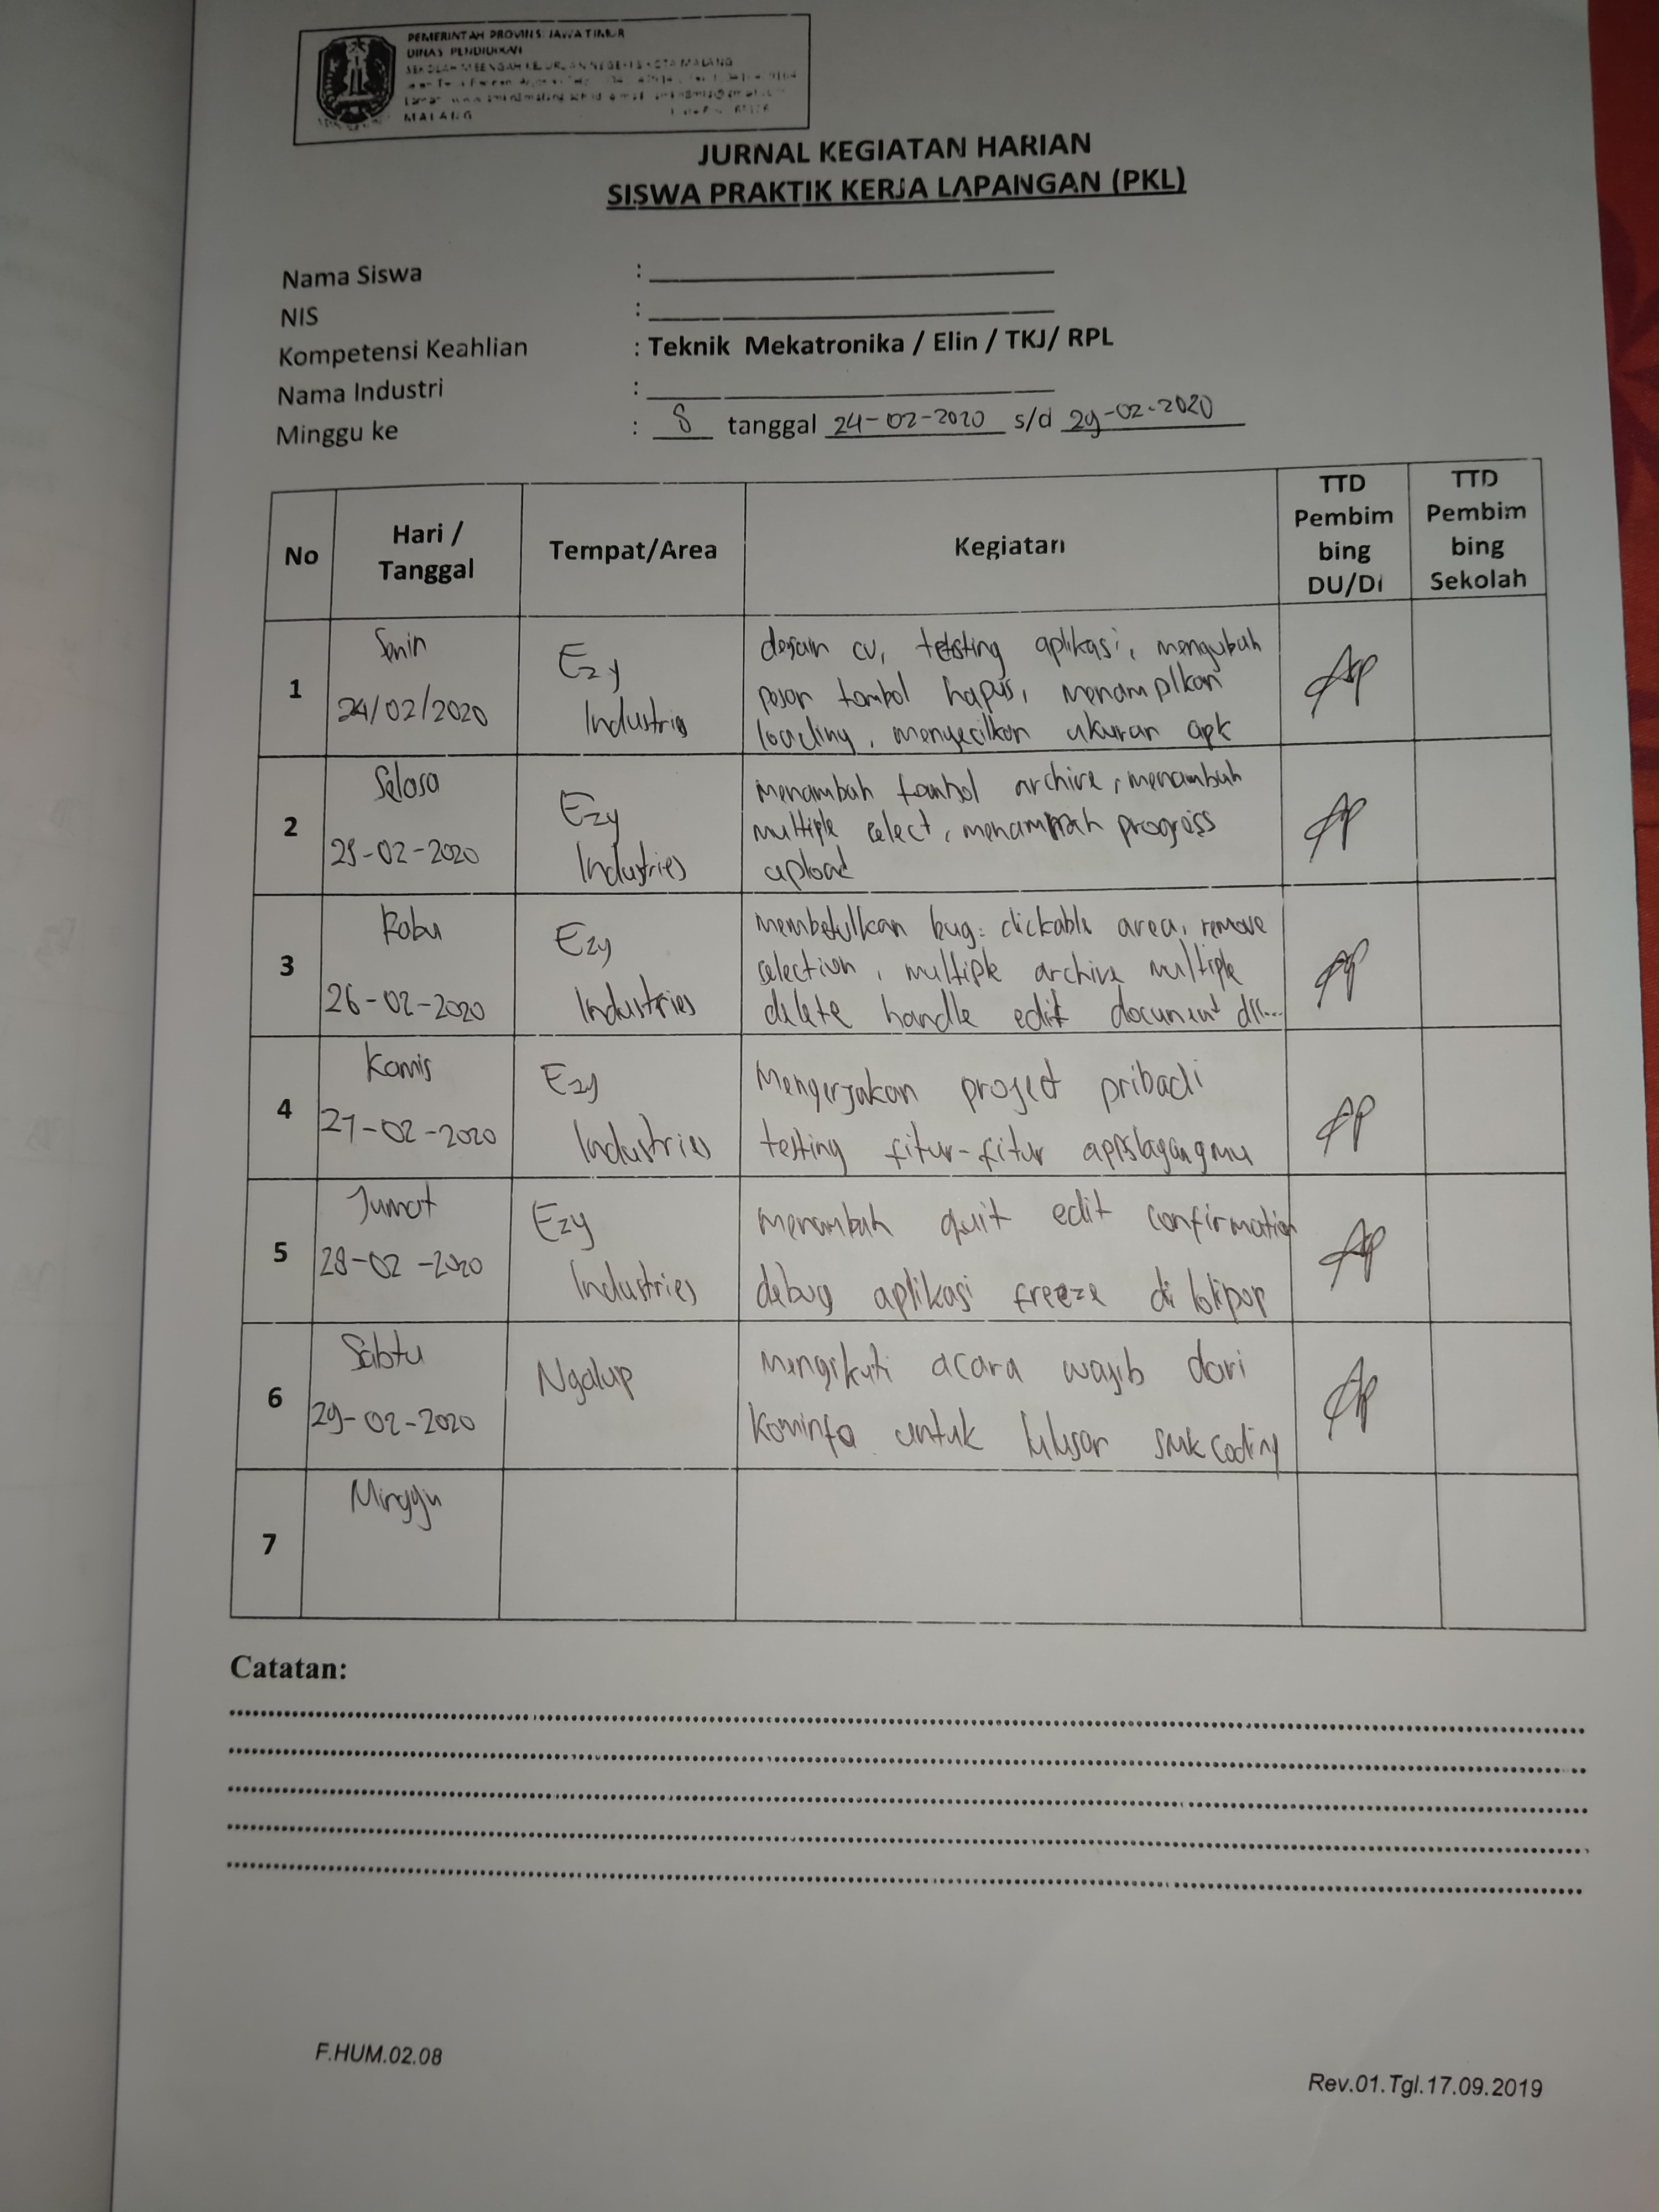 PEMERINTAH PROVINSI JAWA TIMUR
DINAS PENDIDIKAN
MALANG
JURNAL KEGIATAN HARIAN
SISWA PRAKTIK KERJA LAPANGAN (PKL)
Nama Siswa :
NIS :
Kompetensi Keahlian : Teknik Mekatronika / Elin / TKJ/ RPL
Nama Industri :
Minggu ke : 8 tanggal 24-02-2020 s/d 29-02-2020
No Hari / Tanggal Tempat/Area Kegiatan TTD Pembim bing DU/DI TTD Pembim bing Sekolah
1 Senin 24/02/2020 Ezy Industria
desain cv, tetsting aplikasi, mengubah
pesan tombol hapus, menamplkan
loading, mengecilkan ukuran apk
2 Selasa 25-02-2020 Ezy Industries
menambah tombol archive, menambah
multiple select, menambah progress
upload
3 Rabu 26-02-2020 Ezy Industries
membetulkan bug: clickable area, remove
selection, multiple archive multiple
delete handle edit document dll...
4 Kamis 27-02-2020 Ezy Industries
Mengerjakan project pribadi
testing fitur-fitur
5 Jumat 28-02-2020 Ezy Industries
menambah quit edit confirmation
debug aplikasi freeze di lolipop
6 Sabtu 29-02-2020 Ngalup
mengikuti acara wajib dari
Kominfo untuk lulusan SMK Coding
7 Minggu
Catatan:
F.HUM.02.08
Rev.01.Tgl.17.09.2019